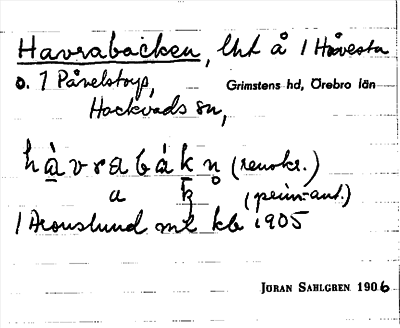 Havrabacken, lht å 1 Håvesta
o. 1 Påvelstorp, Grimstens hd, Örebro län
Hackvads sn,
hàvrabák̄n̥ (renskr.)
a k̄ (prim.-ant.)
1 Aronslund ml kb 1905
JÖRAN SAHLGREN 1906